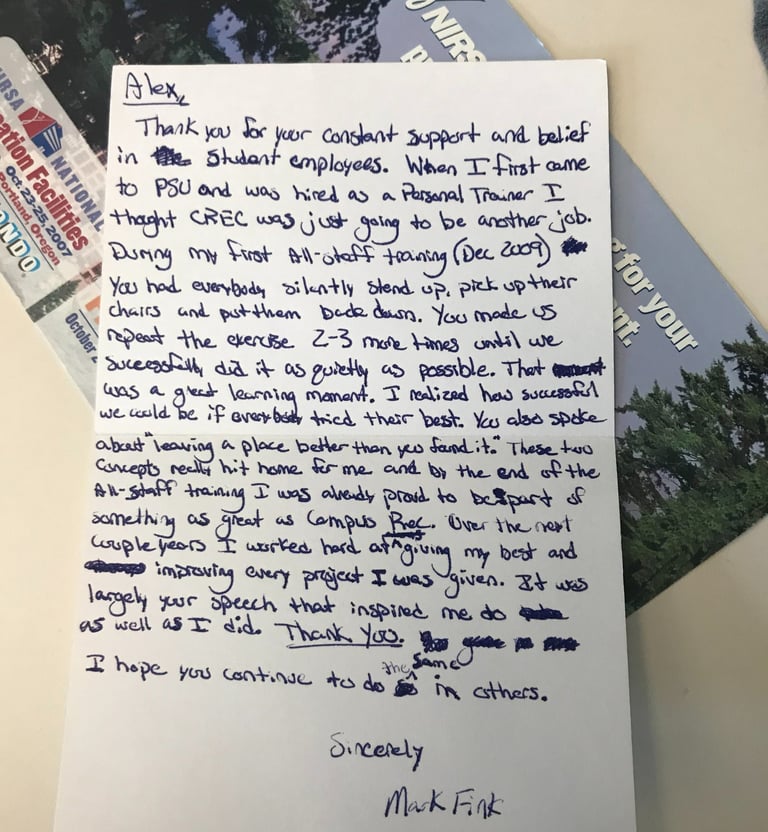 Alex,
Thank you for your constant support and belief
in student employees. When I first came
to PSU and was hired as a Personal Trainer I
thaght CREC was just going to be another job.
During my first All-staff training (Dec 2009)
You had everybody silantly stend up, pick up their
chairs and put them back down. You made us
repeat the exercise 2-3 more times until we
successfully did it as quietly as possible. That
was a great learning moment. I realized how successful
we could be if everybody tried their best. You also spoke
about "leaving a place better than you found it." These two
concepts really hit home for me and by the end of the
All-staff training I was already proud to be part of
something as great as Campus Rec. Over the next
couple years I worked hard at giving my best and
improving every project I was given. It was
largely your speech that inspired me do
as well as I did. Thank You.
I hope you continue to do the same in others.
Sincerely
Mark Fink
NIRSA
NATIONAL
ation Facilities
Oct 23-25, 2007
Portland, Oregon
ANDO
October
NIRS
g for your
nt.